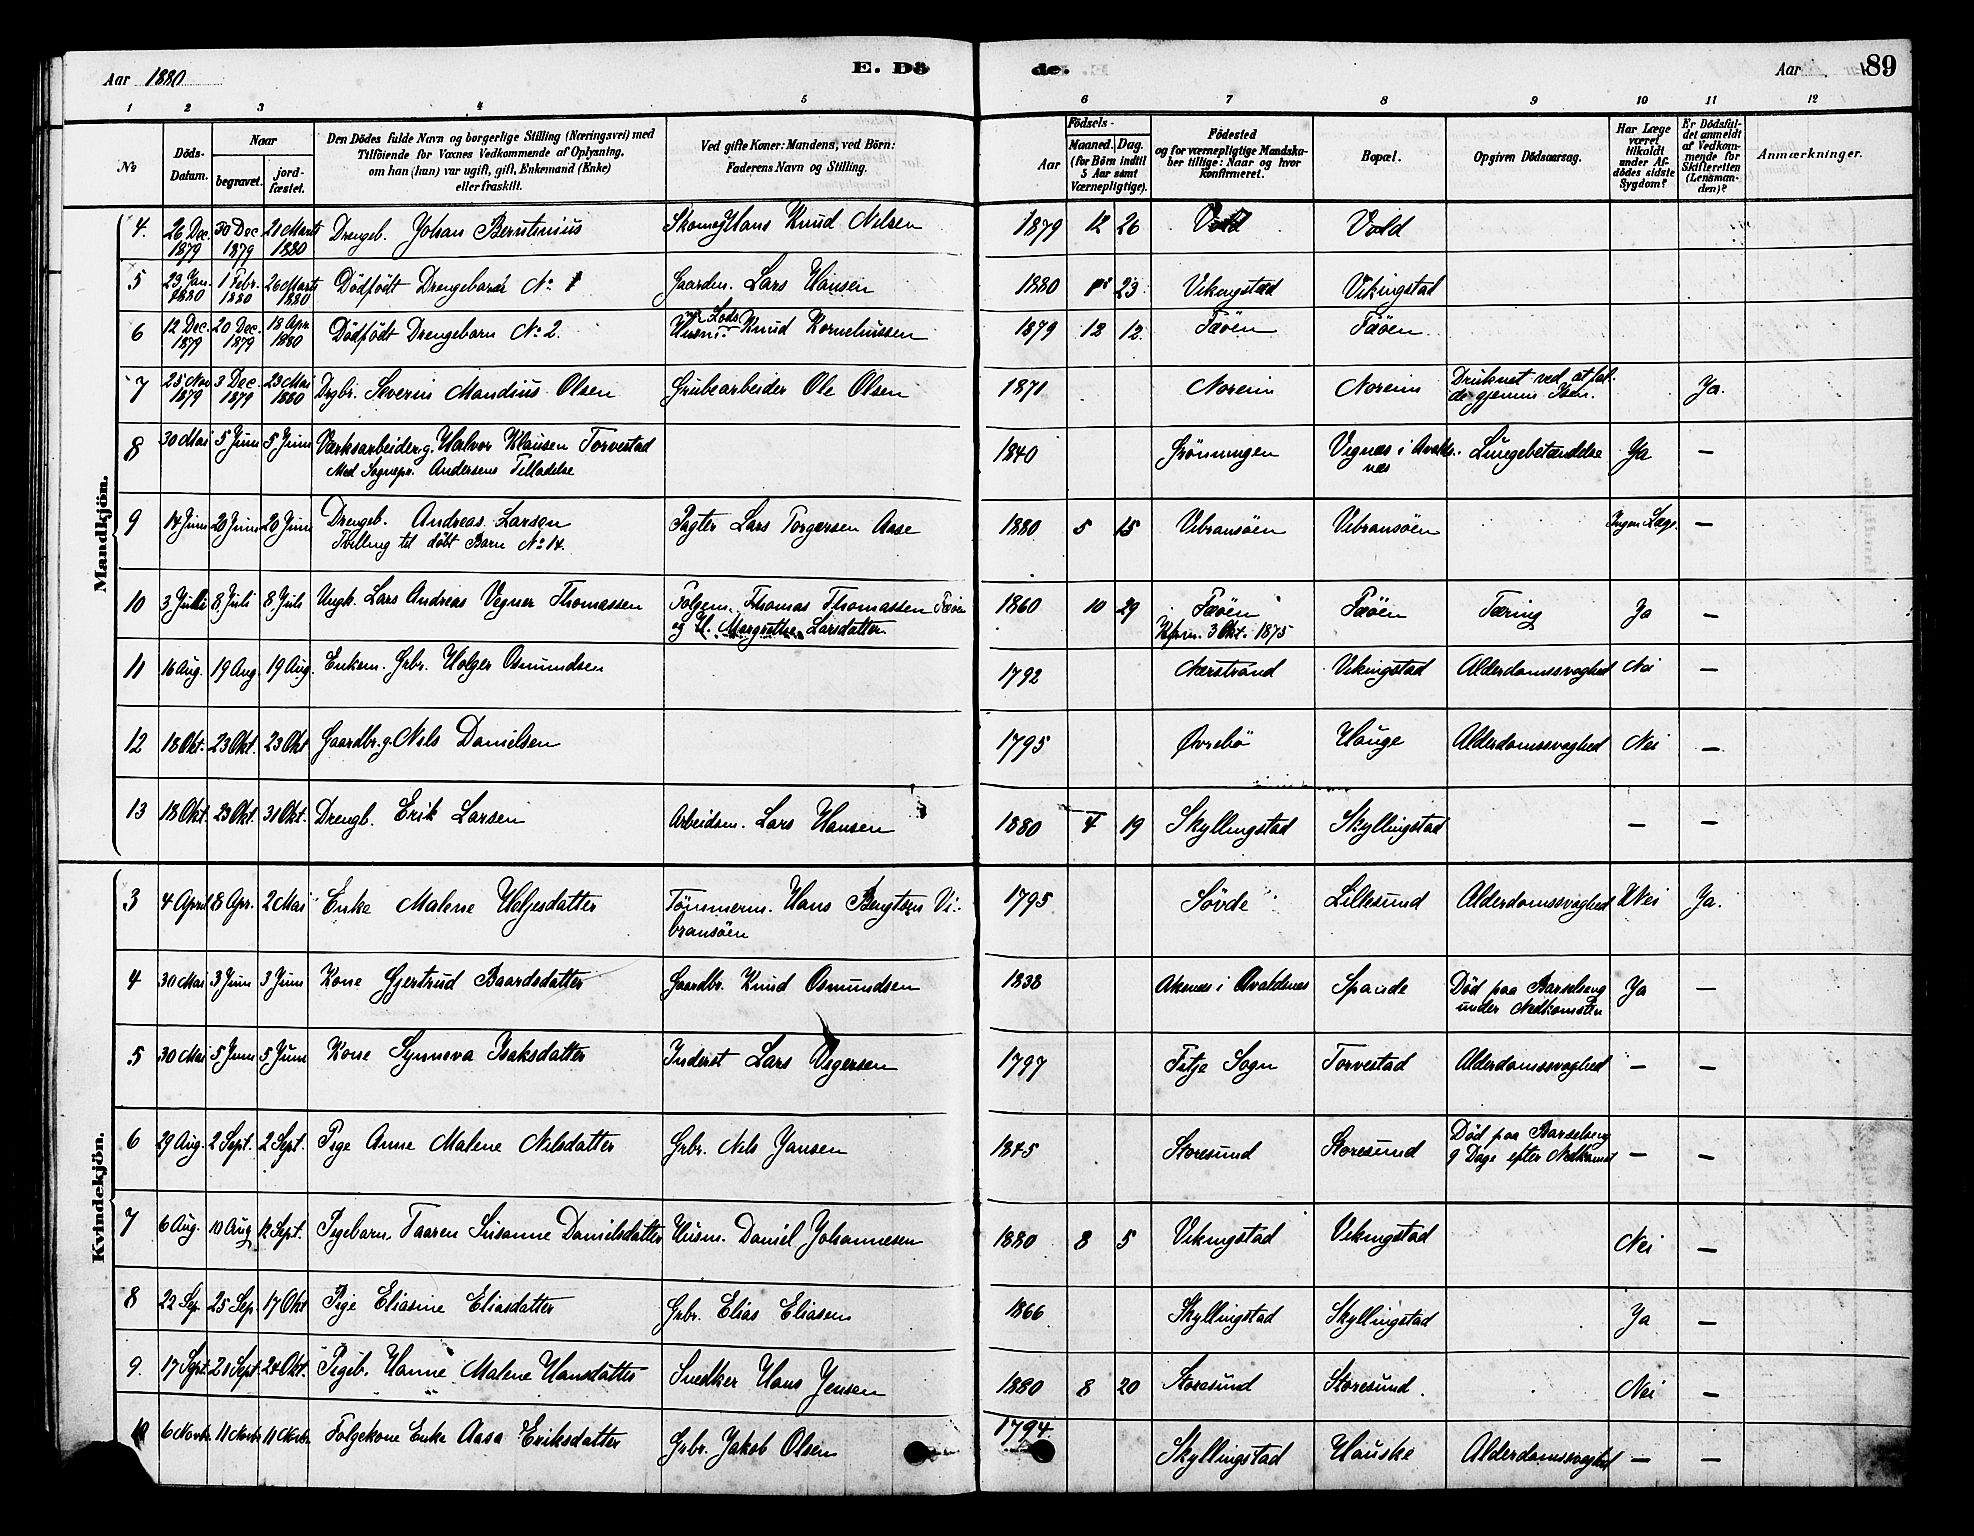 Aar 1880
E. Dö
de.
Aar
89
1 2 3 4 5 6 7 8 9 10 11 12
№
Döds-Datum.
Naar
begravet.
jord-fæstet.
Den Dödes fulde Navn og borgerlige Stilling (Næringsvei) med
Tilföiende for Voxnes Vedkommende af Oplysning,
om han (hun) var ugift, gift, Enkemand (Enke)
eller fraskilt.
Ved gifte Koner: Mandens, ved Börn:
Faderens Navn og Stilling.
Födsels-
Aar
Maaned. Dag.
(for Börn indtil
5 Aar samt
Værnepligtige).
Födested
og for værnepligtige Mandska-
ber tillige: Naar og hvor
konfirmeret.
Bopæl.
Opgiven Dödsaarsag.
Har Læge
været
tilkaldt
under Af-
dödes sidste
Sygdom?
Er Dödsfal-
det anmeldt
af Vedkom-
mende for
Skifteretten
(Lensman-
den)?
Anmærkninger.
Mandkjön.
4. 26 Dec. 1879 30 Dec 1879 21 Marts 1880 Drengeb. Johan Berntinius Skomag Hans Knud Nilsen 1879 12 26 Vold Vold
5 23 Jan. 1880 1 Febr. 1880 26 Marts 1880 Dödfödt Drengebarn No 1 Gaardm. Lars Hansen 1880 23 Vikingstad Vikingstad
6 12 Dec. 1879 20 Dec. 1879 18 Apr 1880 Dödfödt Drengebarn No 2. Husm. og Lods Knud Korneliussen 1879 12 12 Fæöen Fæöen
7 25 Nov 1879 3 Dec. 1879 23 Mai 1880 Drgbr. Severin Mandius Olsen Grubearbeider Ole Olsen 1871 Noreim Noreim Druknet ved at fal-
de gjennem Isen. Ja.
8 30 Mai 5 Juni 5 Juni Værksarbeider g. Halvor Klausen Torvestad 1840 Grönningen Vignæs i Avalds-
næs Lungebetændelse Ja —
Med Sognepr. Andersens Tilladelse
9 14 Juni 20 Juni 20 Juni Drengeb. Andreas Larsen Pagter Lars Torgersen Aase 1880 5 15 Vibransöen Vibransöen Ingen Læge —
Tvilling til döbt Barn No 14.
10 3 Juli 8 Juli 8 Juli Ungk. Lars Andreas Vegner Thomassen Folgem. Thomas Thomassen Fæöen 1860 10 29 Fæöen Fæöen Tæring Ja —
og H. Margrethe Larsdatter Kfirm. 3 Okt. 1875
11 16 Aug. 19 Aug. 19 Aug. Enkem. Grbr. Holger Osmundsen 1792 Nærstrand Vikingstad Alderdomssvaghed Nei —
12 18 Okt. 23 Okt. 23 Okt Gaardbr. g. Nils Danielsen 1795 Øvrebö Hauge Alderdomssvaghed Nei —
13 18 Okt. 23 Okt. 31 Okt. Drengb. Erik Larsen Arbeidsm. Lars Hansen 1880 4 19 Skyllingstad Skyllingstad — —
Kvindekjön.
3 4 April 8 Apr. 2 Mai Enke Malene Heljesdatter Tömmerm. Hans Bengtsen Vi-
bransöen 1795 Sövde Lillesund Alderdomssvaghed Nei Ja.
4 30 Mai 3 Juni 3 Juni Kone Gjertrud Baardsdatter Gaardbr. Knud Osmundsen 1838 Aknæs i Avaldsnes Spande Död paa Barselseng
under Nedkomsten Ja —
5 30 Mai 5 Juni 5 Juni Kone Synneva Isaksdatter Inderst Lars Vegersen 1797 Fitje Sogn Torvestad Alderdomssvaghed — —
6 29 Aug. 2 Sept. 2 Sept. Pige Anne Malene Nilsdatter Grbr. Nils Jansen 1845 Storesund Storesund Död paa Barselseng
9 Dage efter Nedkomst — —
7 6 Aug. 10 Aug 12 Sept. Pigebarn Taaren Susanne Danielsdatter Husm. Daniel Johannesen 1880 8 5 Vikingstad Vikingstad Nei —
8 22 Sep. 25 Sep. 17 Okt Pige Eliasine Eliasdatter Grbr. Elias Eliasen 1866 Skyllingstad Skyllingstad Ja —
9. 17 Sept. 21 Sept. 24 Okt. Pigeb. Hanne Malene Hansdatter Snedker Hans Jensen 1880 8 20 Storesund Storesund. Nei —
10 6 Novbr. 11 Novbr. 11 Novbr. Folgekone Enke Aasa Eriksdatter Grbr. Jakob Olsen 1794 Skyllingstad Hauske Alderdomssvaghed — —